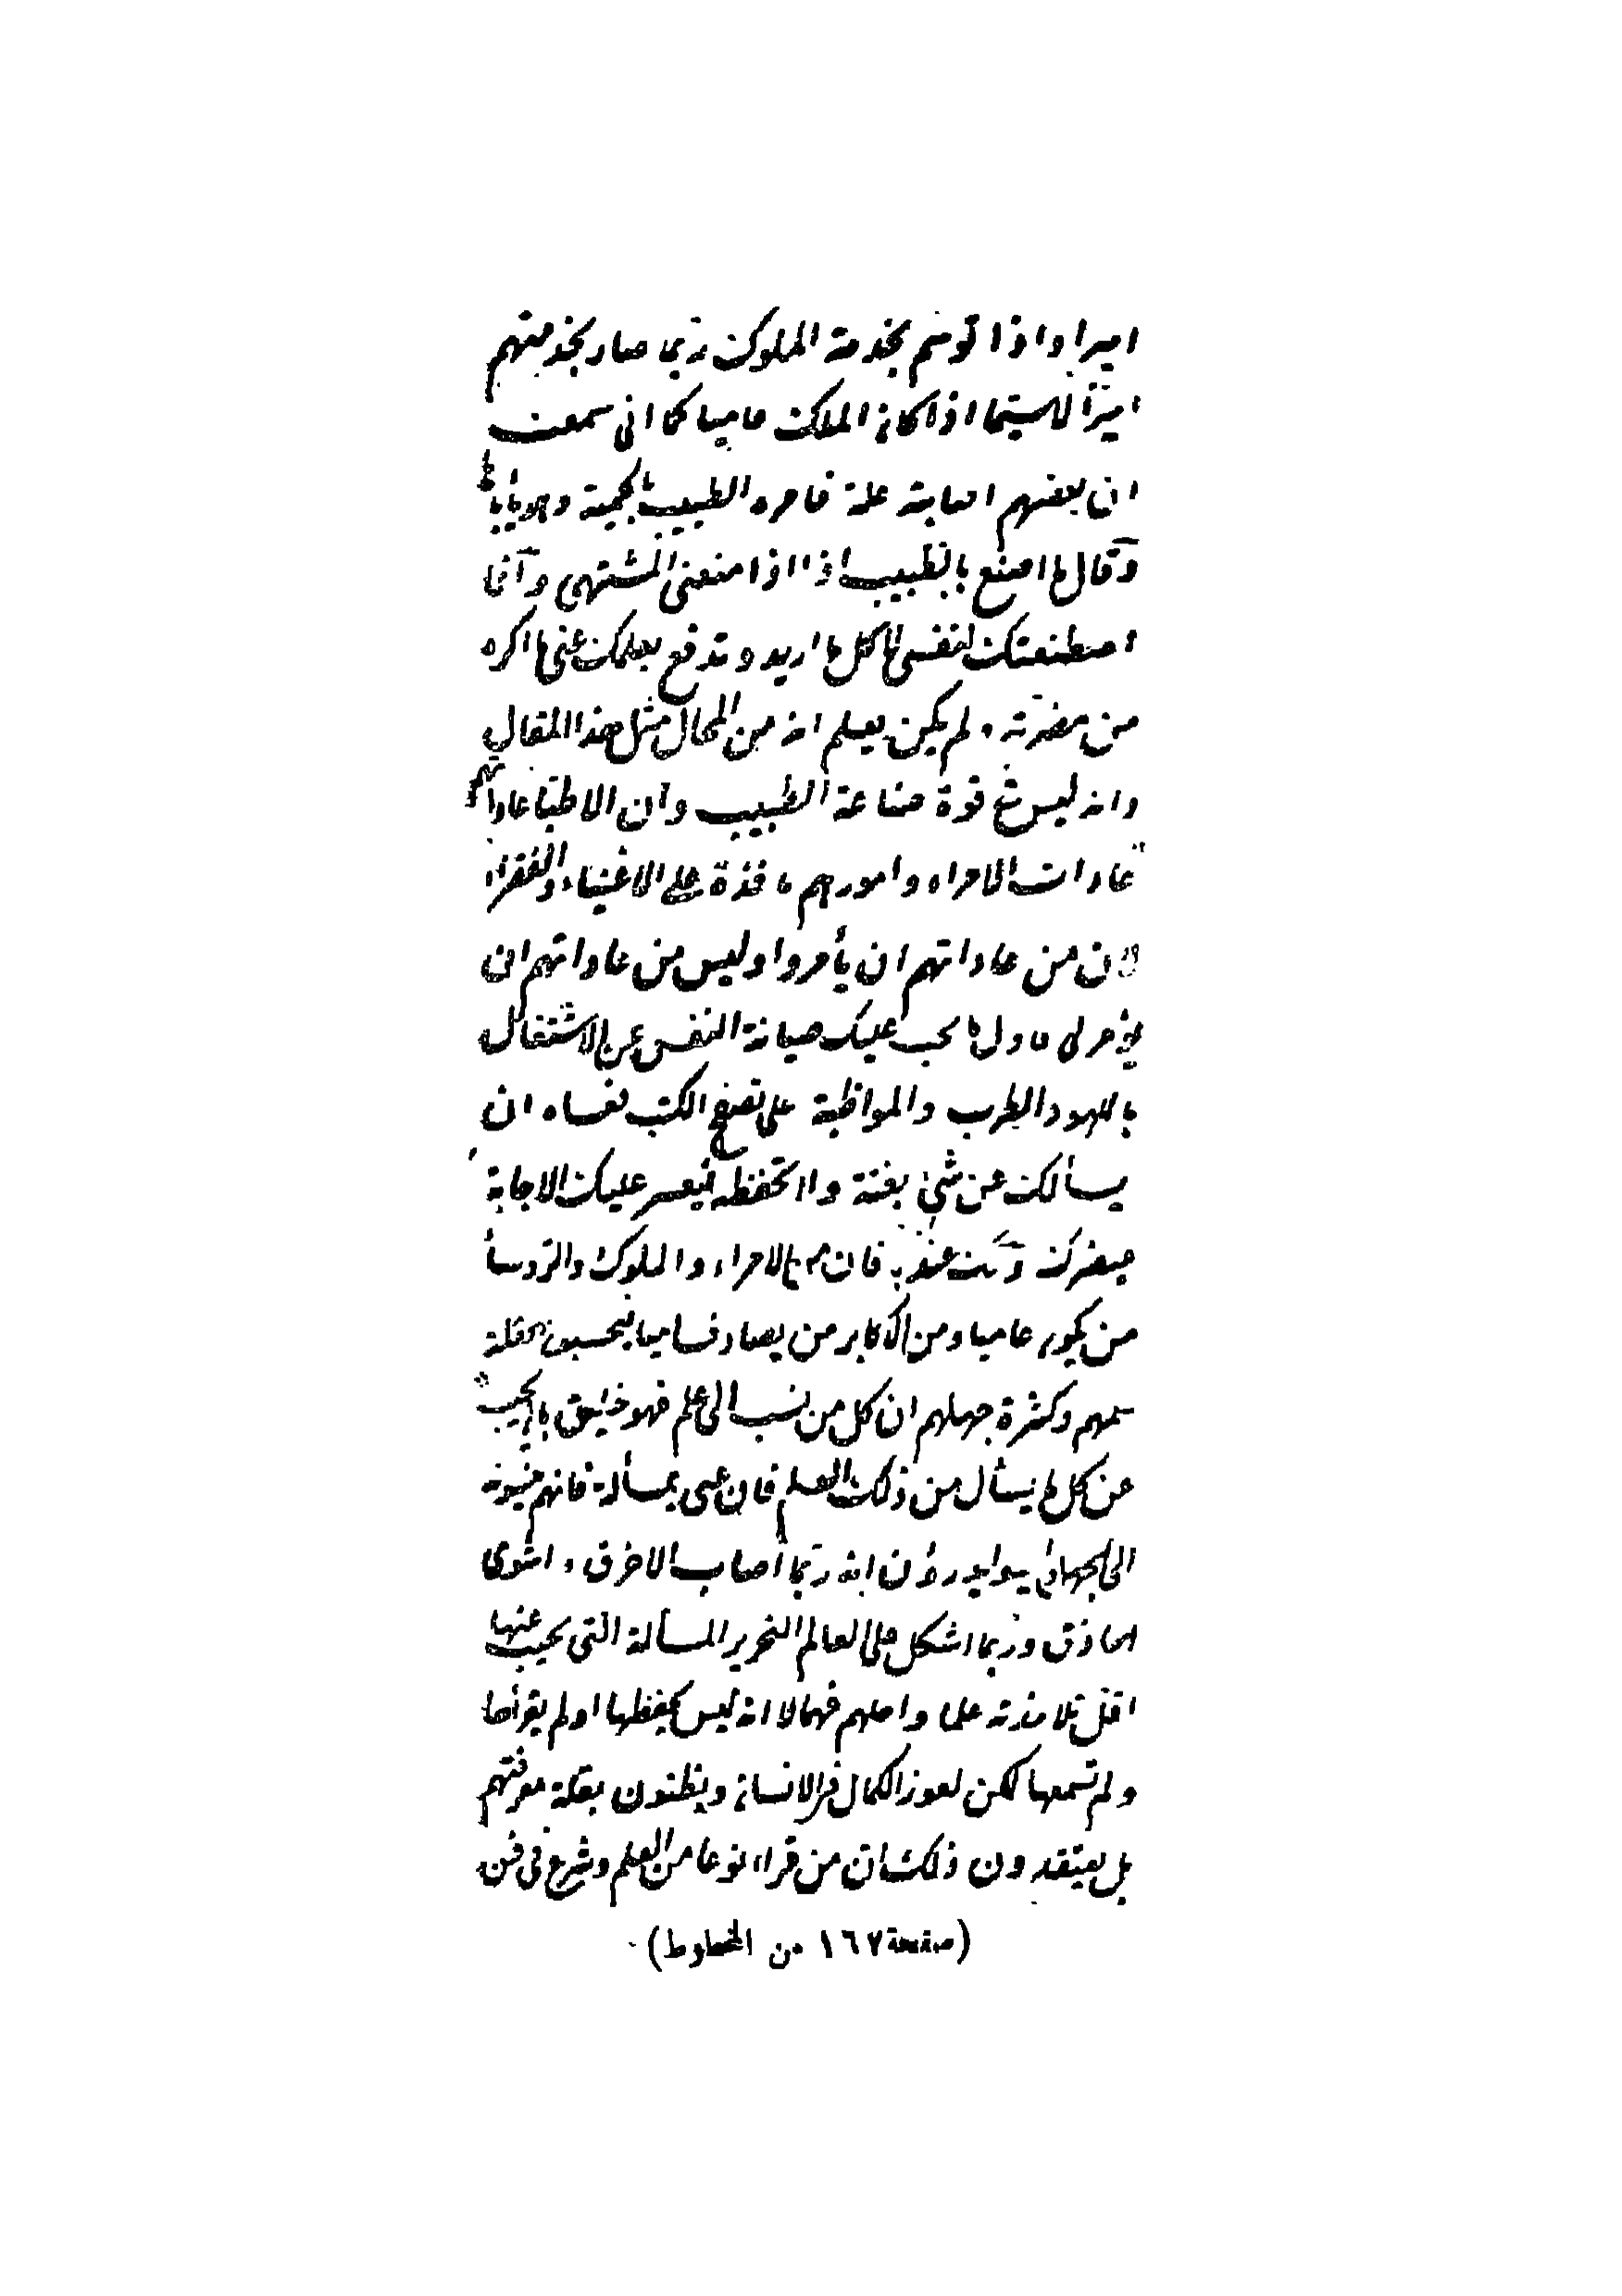 اميرا واذا توسم بخدمة الملوك ربما صار بخدمتهم
اميرًا لاسيما اذا كان الملك عاميا كما انى سمعت
ان بعضهم اصابته علة فامره الطبيب بالحمية وهو يأباها
وقال ما اصنع بالطبيب اذا منعنى المشتهى وانما
اصطنعتك لنفسى لآكل ما اريد وتدفع بعلمك عنى ما اكره
من مضرته ولم يكن يعلم انه من المحال مثل هذا المقال
وانه ليس فى قوة صناعة الطبيب وان الاطبا عاداتهم
عادات الامراء وامورهم نافذة على الاغنياء والفقراء
لان من عاداتهم ان يأمروا وليس من عاداتهم ان
يؤمر فاول ما يجب عليك صيانة النفس عن الاشتغال
باللهو والطرب والمواظبة على تصفح الكتب فعساه ان
يسألك عن شئ بغتة ولا تحفظه فيعسر عليك الاجابة
فان الامراء والملوك والرؤسأ
من يكون عاميا ومن الاكابر من يصادف فيحسبون لقلة
وكثرة جهلهم ان كل من نسب الى علم فهو خليق بان يجيب
عن كل ما يسأل من ذلك العلم فان عى بمسألة فانهم ينسبونه
الى الجهل ولا يدرون انه ربما اصاب الاخرق واشوى
الحاذق وربما اشكل على العالم النحرير المسألة التى يجيب عنها
اقل تلامذته علما واصلهم فهما لا انه ليس يحفظها او لم يقرأها
ولم تسمعها لكن لعوز الكمال فى الانسان ويظنون بقلة معرفتهم
بل يعتقدون ذلك ان من قراء نوعا من العلم وشرع فى فن
(صفحة ١٦٧ من المخطوط)